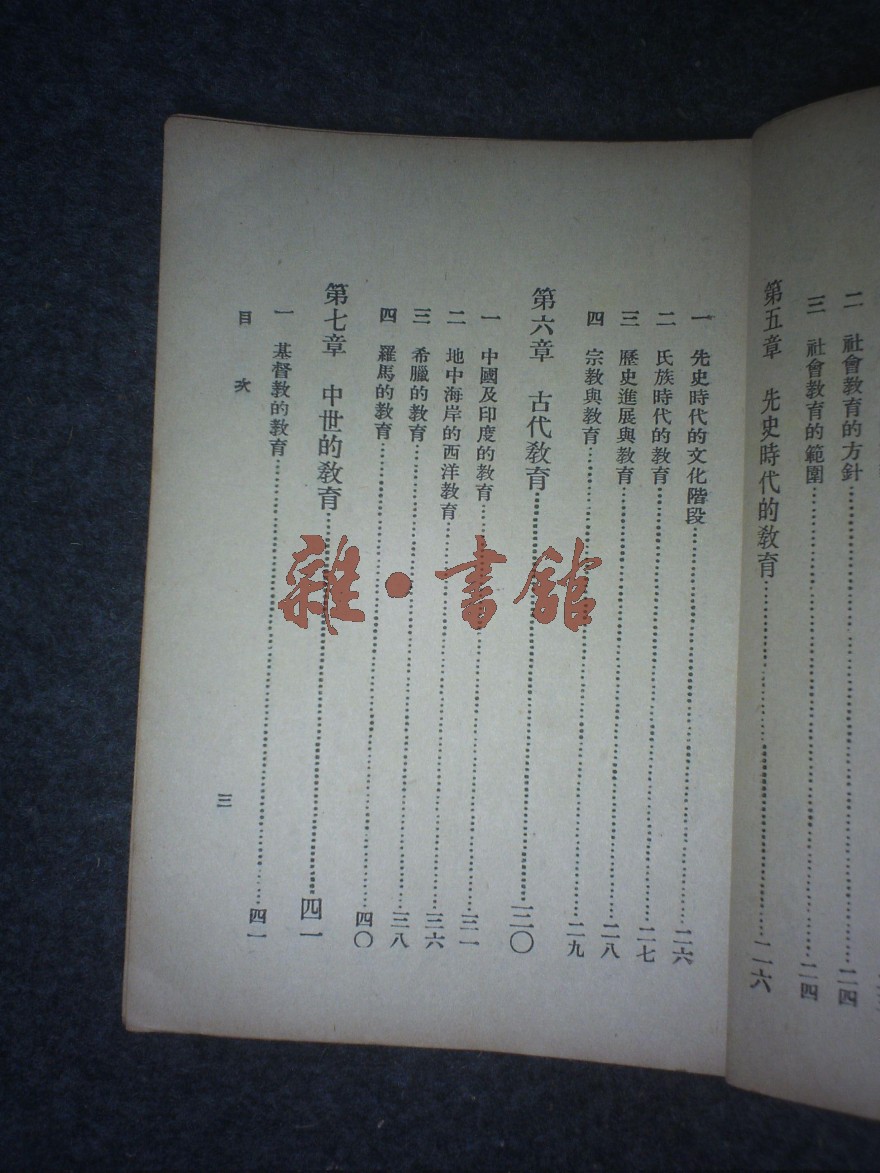 二　社會教育的方針……二四
三　社會教育的範圍……二四
第五章　先史時代的敎育……二六
一　先史時代的文化階段……二六
二　氏族時代的教育……二七
三　歷史進展與教育……二八
四　宗教與教育……二九
第六章　古代敎育……三〇
一　中國及印度的教育……三一
二　地中海岸的西洋教育……三六
三　希臘的教育……三八
四　羅馬的教育……四〇
第七章　中世的敎育……四一
一　基督教的教育……四一
目次
三
雜·書館